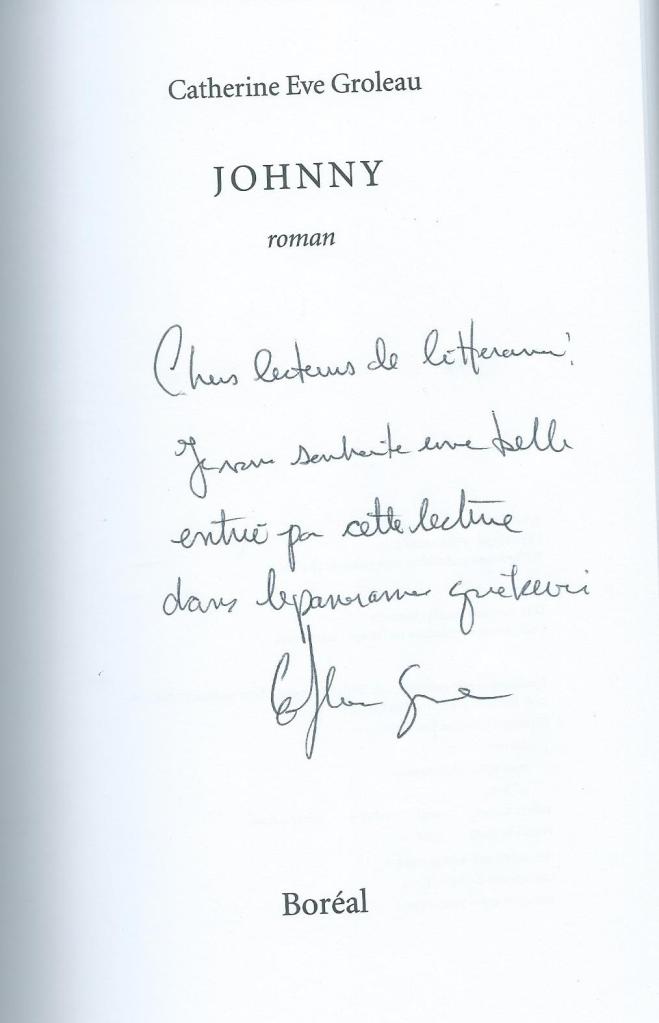 Catherine Eve Groleau
JOHNNY
roman
Chers lecteurs de
Je vous souhaite une belle
entrée par cette lecture
dans le panorama québécois
Boréal